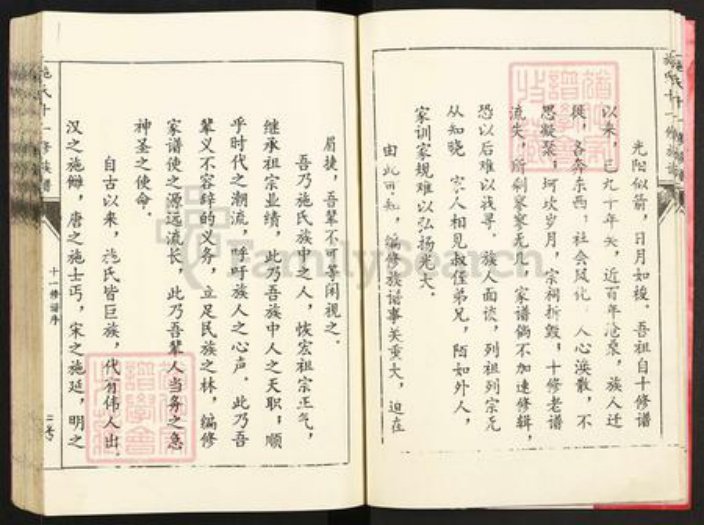 光阳似箭，日月如梭。吾祖自十修谱
以来，已九十年矣，近百年沧桑，族人迁
徙，各奔东西，社会风化，人心涣散，不
思凝聚，坷坎岁月，宗祠拆毁，十修老谱
流失，所剩寥寥无几，家谱倘不加速修辑，
恐以后难以找寻。族人面谈，列祖列宗无
从知晓，家人相见叔侄弟兄，陌如外人，
家训家规难以弘扬光大。
由此可知，编修族谱事关重大，迫在
眉捷，吾辈不可等闲视之。
吾乃施氏族中之人，恢宏祖宗正气，
继承祖宗业绩，此乃吾族中人之天职；顺
乎时代之潮流，呼吁族人之心声，此乃吾
辈义不容辞的义务，立足民族之林，编修
家谱使之源远流长，此乃吾辈人当务之急
神圣之使命。
自古以来，施氏皆巨族，代有伟人出。
汉之施雠，唐之施士丐，宋之施延，明之
施氏十一修族谱
十一修谱序
FamilySearch